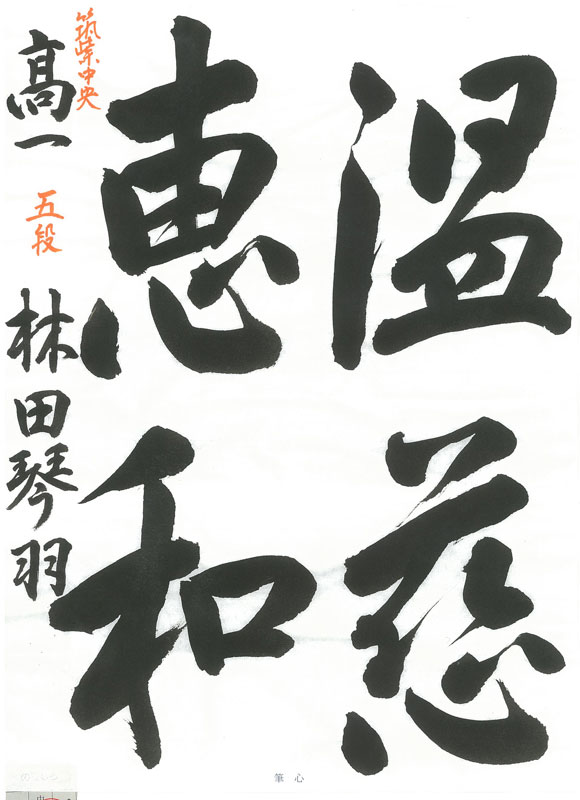 温慈
恵和
筑紫中央
高一 五段 林田琴羽
筆心